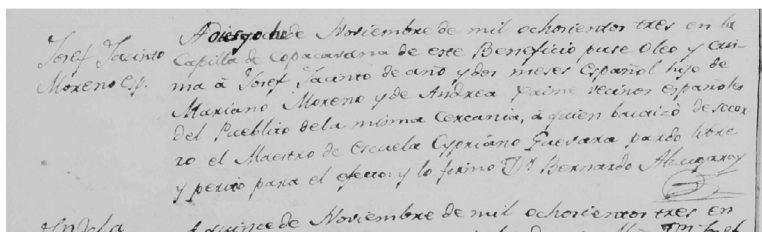 A diesyocho de Noviembre de mil ochosientos tres en la
Josef Jacinto
Moreno esp.
Capilla de Copacavana de este Beneficio puse Oleo y cris-
ma à Josef Jacinto de año y dos meses Español hijo de
Mariano Moreno y de Andrea Jaime vecinos españoles
del Pueblito dela misma Cercania, á quien bautizó de socor-
ro el Maestro de Escuela Cypriano Guevara pardo libre
y perito para el efecto: y lo firmo Dr Bernardo
A quince de Noviembre de mil ochosientos tres en